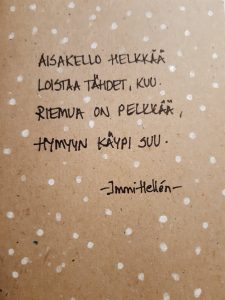 AISAKELLO HELKKÄÄ
LOISTAA TÄHDET, KUU.
RIEMUA ON PELKKÄÄ,
HYMYYN KÄYPI SUU.
-Immi Hellén-